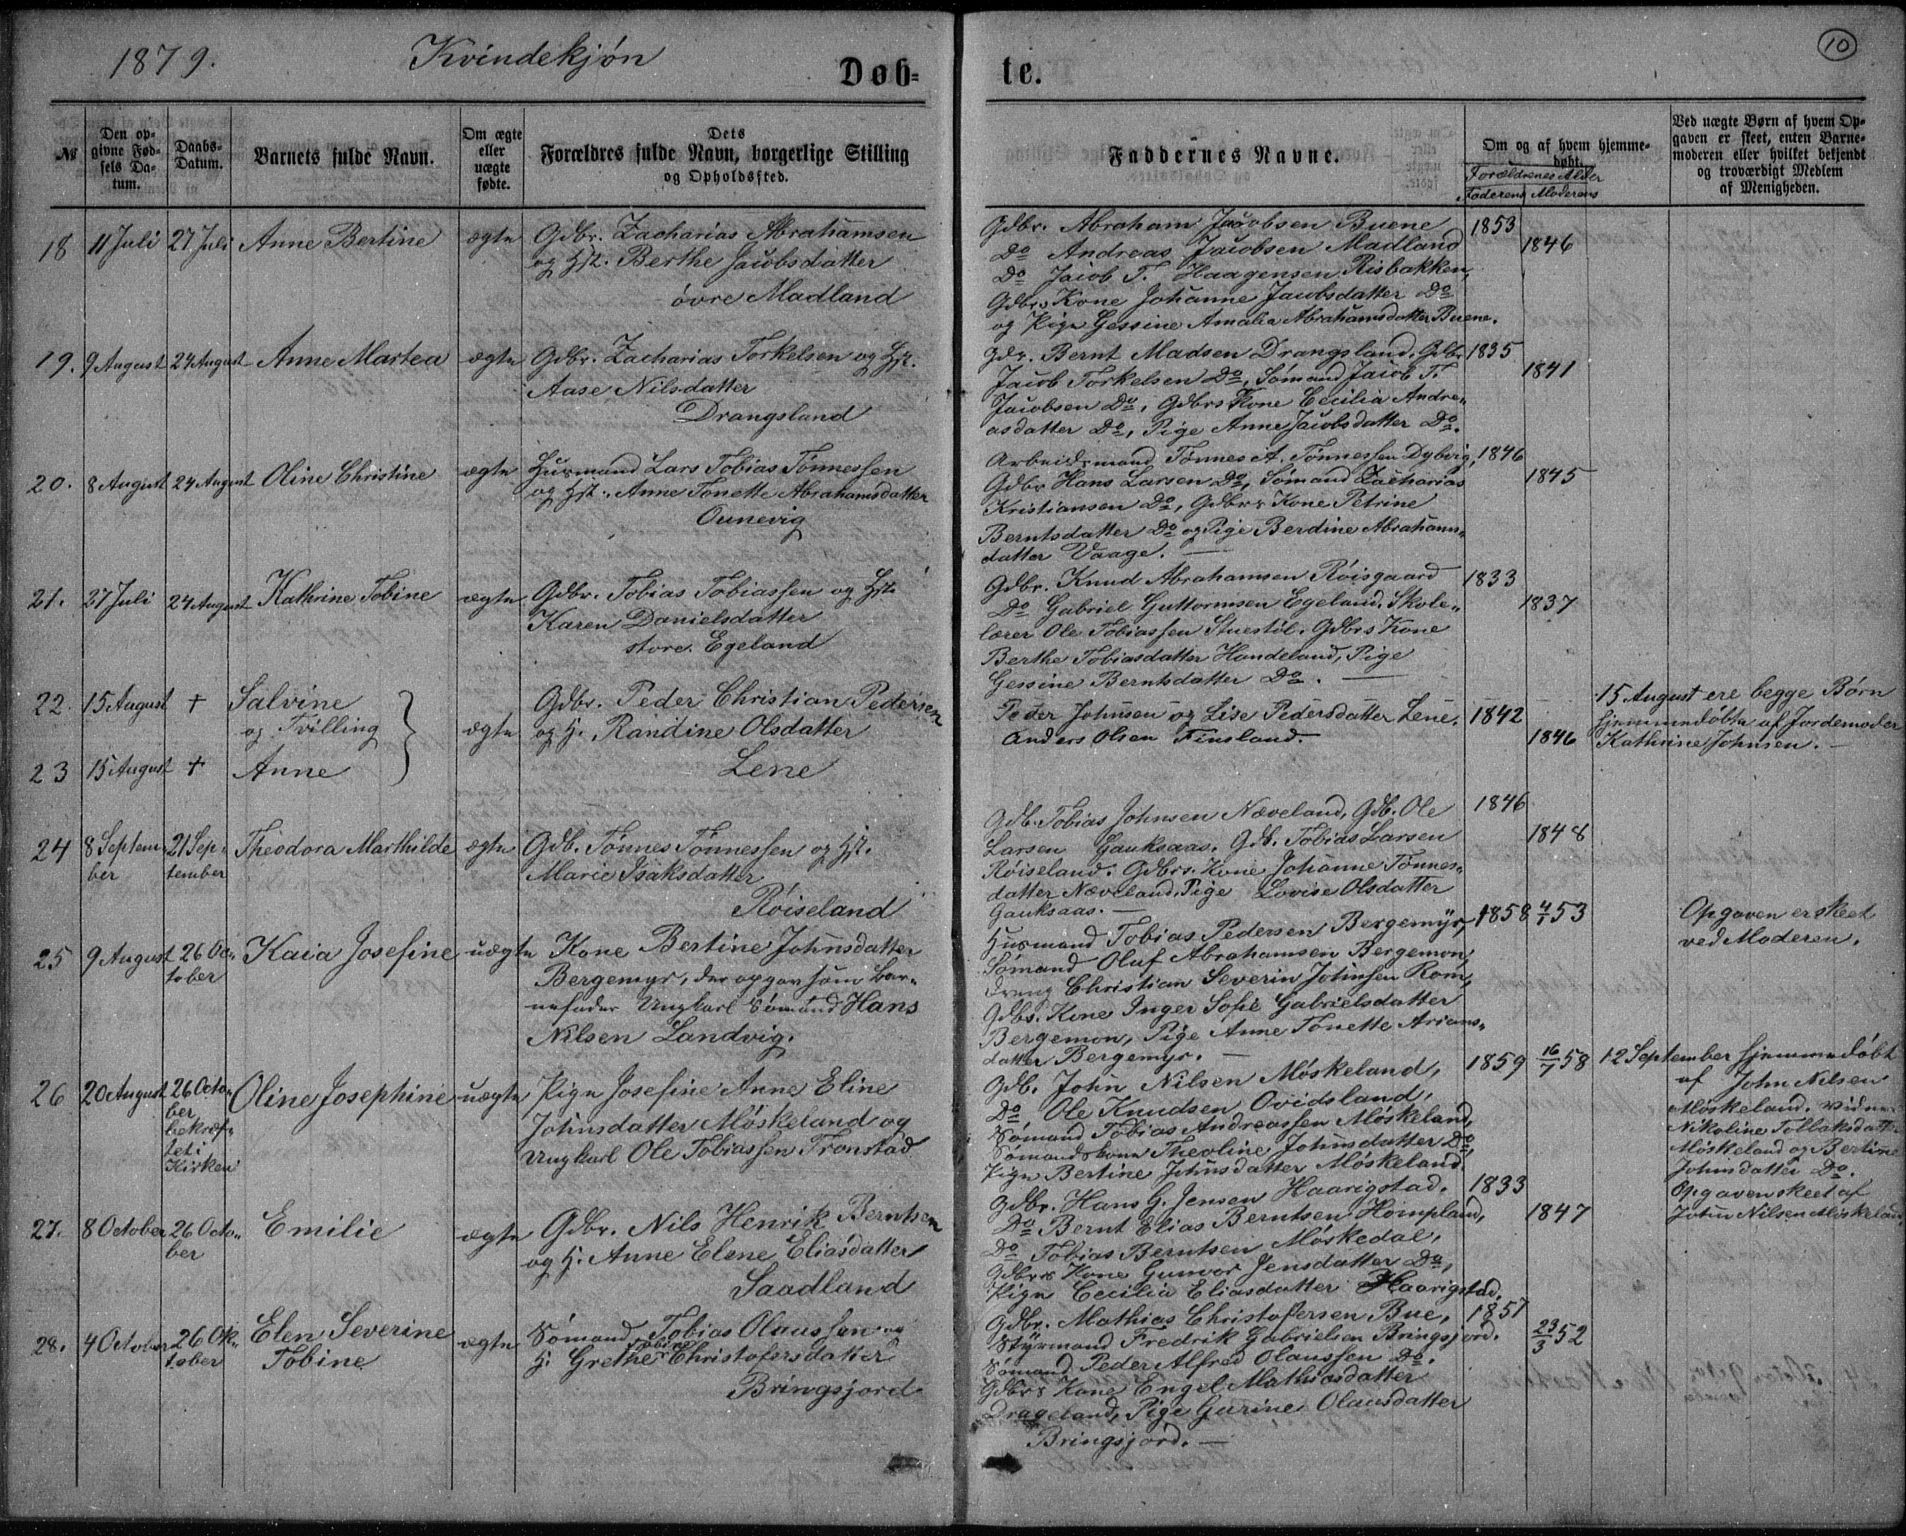 1879. Kvindekjøn
Døb-
te.
10
№
Den op-
givne Fød-
sels Da-
tum.
Daabs-
Datum.
Barnets fulde Navn.
Om ægte
eller
uægte
fødte.
Dets
Forældres fulde Navn, borgerlige Stilling
og Opholdssted.
Faddernes Navne.
Om og af hvem hjemme-
døbt.
Forældrenes Alder
Faderens Moderens
Ved uægte Børn af hvem Op-
gaven er skeet, enten Barne-
moderen eller hvilket bekjendt
og troværdigt Medlem
af Menigheden.
18 11 Juli 27 Juli Anne Bertine ægte
Gdbr. Zacharias Abrahamsen
og Hst. Berthe Jacobsdatter
øvre Madland
Gdbr. Abraham Jacobsen Buene
Do Andreas Jacobsen Madland
Do Jacob T. Haagensen Risbakken,
Gdbrs Kone Johanne Jacobsdatter Do
og Pige Gessine Amalia Abrahamsdatter Buene.
1853
1846
19. 9 August 24 August Anne Martea ægte
Gdbr. Zacharias Torkelsen og Hst.
Aase Nilsdatter
Drangsland
Gdr. Bernt Madsen Drangsland, Gdbr
Jacob Torkelsen Do, Sømand Jacob T.
Jacobsen Do, Gdbrs Kone Cecilia Andre-
asdatter Do, Pige Anne Jacobsdatter Do.
1835
1841
20. 8 August 24 August Oline Christine ægte
Husmand Lars Tobias Tønnessen
og Hst. Anne Tonette Abrahamsdatter
Ounevig
Arbeidsmand Tønnes A. Tønnessen Dybvig,
Gdbr Hans Larsen Do, Sømand Zacharias
Kristiansen Do, Gdbrs Kone Petrine
Berntsdatter Do og Pige Berdine Abrahams-
datter Vaage.
1846
1845
21. 27 Juli 24 August Kathrine Tobine ægte
Gdbr. Tobias Tobiassen og Hst.
Karen Danielsdatter
store Egeland
Gdbr. Knud Abrahamsen Røisgaard
Do Gabriel Guttormsen Egeland, Skole-
lærer Ole Tobiassen Stuestøl. Gdbrs Kone
Berthe Tobiasdatter Handeland, Pige
Gessine Berntsdatter Do.
1833
1837
22. 15 August + Salvine
og Tvilling
23 15 August + Anne
ægte
Gdbr. Peder Christian Pedersen
og H. Randine Olsdatter
Lene
Peder Johnsen og Lise Pedersdatter Lene,
Anders Olsen Finsland.
1842
1846
15 August ere begge Børn
hjemmedøbte af Jordemoder
Kathrine Johnsen.
24 8 Septem-
ber
21 Sep-
tember
Theodora Marthilde ægte
Gdb. Tønnes Tønnessen og Hst.
Marie Isaksdatter
Røiseland
Gdb. Tobias Johnsen Næveland, Gdb. Ole
Larsen Gauksaas. Gdb. Tobias Larsen
Røiseland. Gdbrs. Kone Johanne Tønnes-
datter Næveland, Pige Lovise Olsdatter
Gauksaas.
1846
1848
25 9 August 26 Oc-
tober
Kaia Josefine uægte
Kone Bertine Johnsdatter
Bergemyr, der opgav som Bar-
nefader Ungkarl Sømand Hans
Nilsen Landvig.
Husmand Tobias Pedersen Bergemyr,
Sømand Oluf Abrahamsen Bergemon,
dreng Christian Severin Johnsen Rom,
Gdbs. Kone Inger Sofie Gabrielsdatter
Bergemon, Pige Anne Tonette Arians-
datter Bergemyr.
1858 4/1 53
Opgaven er skeet
ved Moderen.
26 20 August 26 Octo-
ber
bekræf-
tet i
Kirken
Oline Josephine uægte
Pige Josefine Anne Eline
Johnsdatter Møskeland og
Ungkarl Ole Tobiassen Tronstad
Gdb. John Nilsen Møskeland,
Do Ole Knudsen Ovidsland,
Sømand Tobias Andreassen Møskeland,
Sømandskone Theoline Johnsdatter Do,
Pige Bertine Johnsdatter Møskeland
1859 16/7 58
12 September hjemmedøbt
af John Nilsen
Møskeland. Vidne
Nikoline Tollaksdatt.
Møskeland og Bertine
Johnsdatter Do.
Opgaven skeet af
John Nilsen Møskeland.
27. 8 October 26 Octo-
ber
Emilie ægte
Gdbr. Nils Henrik Berntsen
og H. Anne Elene Eliasdatter
Saadland
Gdbr. Hans G. Jensen Haarigstad.
Do Bernt Elias Berntsen Hompland,
Do Tobias Berntsen Møskedal,
Gdbrs Kone Gunvor Jensdatter Do,
Pige Cecilia Eliasdatter Haarigstad,
1833
1847
28. 4 October 26 Ok-
tober
Elen Severine
Tobine
ægte
Sømand Tobias Olaussen og
H. Grethe Tobine Christofersdatter
Bringsjord
Gdbr. Mathias Christofersen Bue,
Styrmand Fredrik Gabrielsen Bringsjord.
Sømand Peder Alfred Olaussen Do.
Gdbrs Kone Engel Mathiasdatter
Drageland, Pige Gurine Olausdatter
Bringsjord.
1857
23/3 52